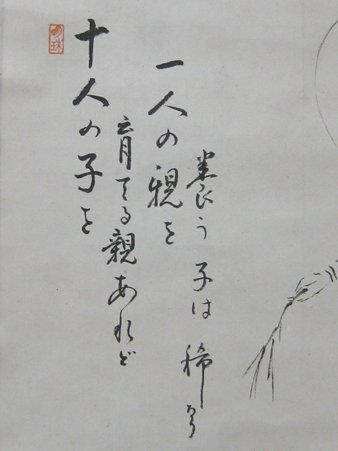 十人の子を
育てる親あれど
一人の親を
養う子は稀なり